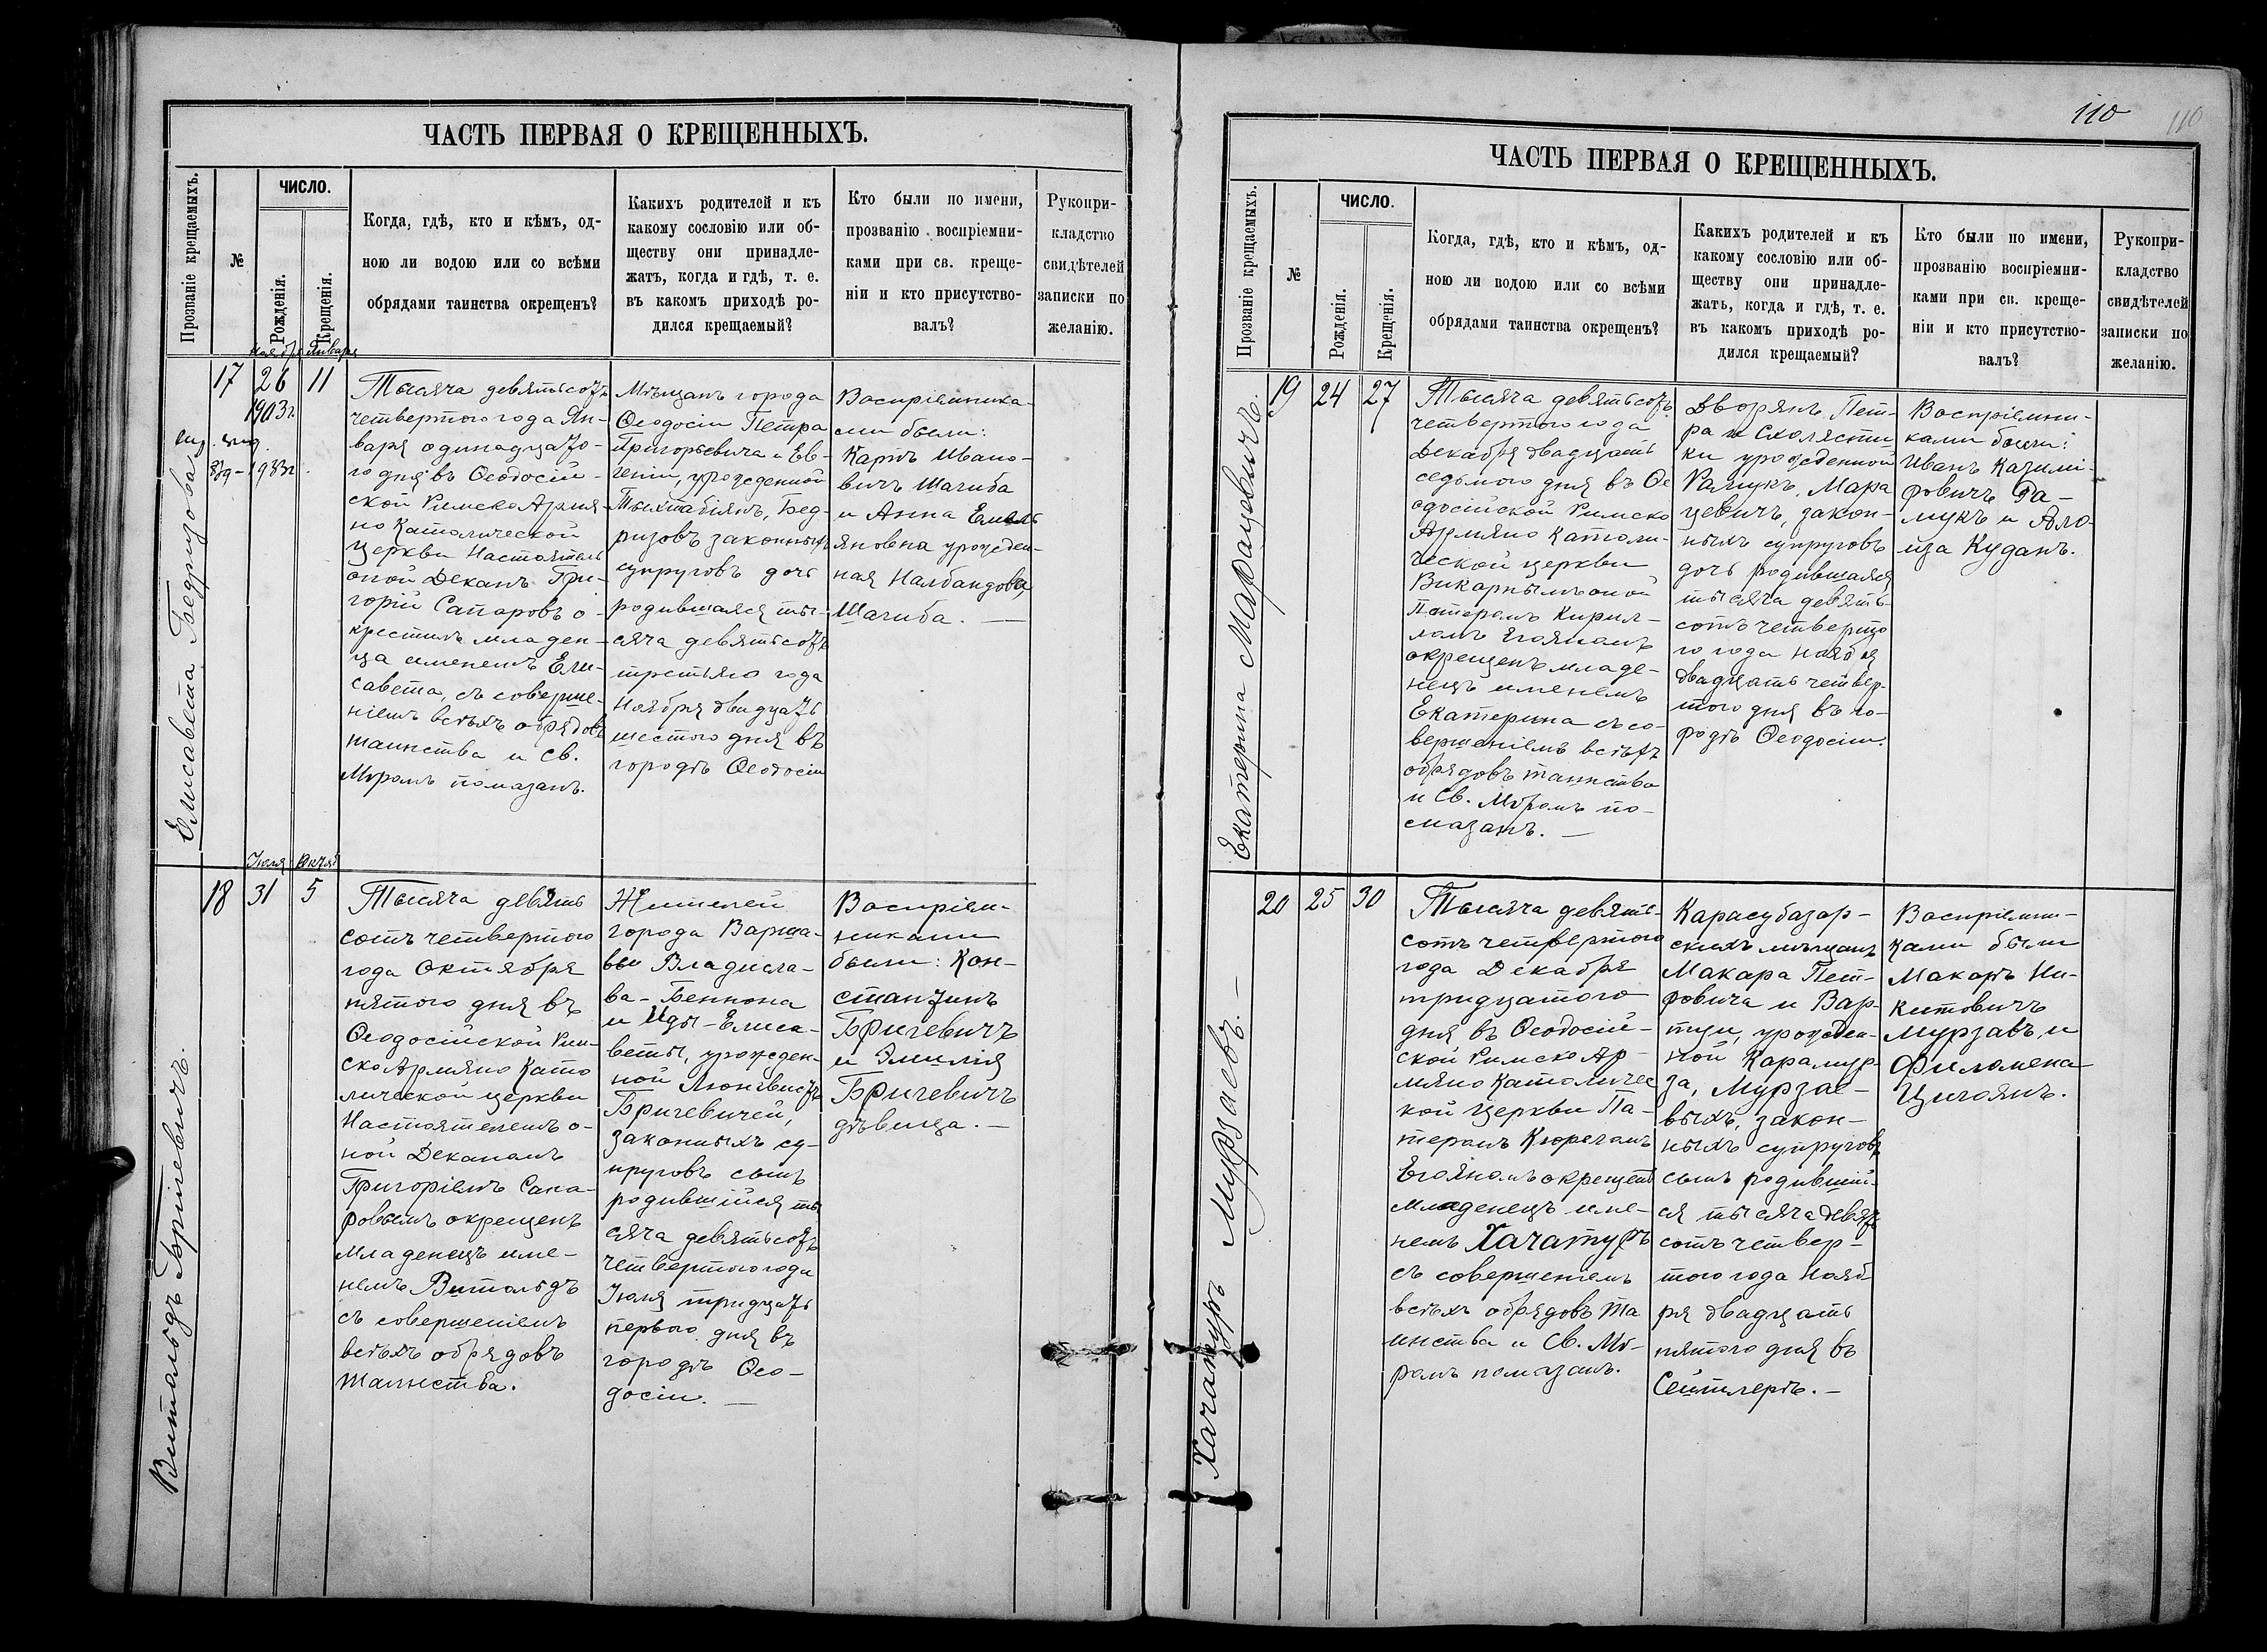 ЧАСТЬ ПЕРВАЯ О КРЕЩЕННЫХЪ.
Прозваніе крещаемыхъ.
№
ЧИСЛО.
Рожденія.
Крещенія.
Когда, гдѣ, кто и кѣмъ, од-
ною ли водою или со всѣми
обрядами таинства окрещенъ?
Какихъ родителей и къ
какому сословію или об-
ществу они принадле-
жатъ, когда и гдѣ, т. е.
въ какомъ приходѣ ро-
дился крещаемый?
Кто были по имени,
прозванію воспріемни-
ками при св. креще-
ніи и кто присутство-
валъ?
Рукопри-
кладство
свидѣтелей
записки по
желанію.
Елисавета Бедризова
17
Ноябр
26
1903г
Января
11
1983г.
Тысяча девятьсотъ
четвертого года Ян-
варя одинадцато-
го дня въ Ѳеодосій-
ской Римско Армя-
но Католической
церкви Настоятель
оной Деканъ Гри-
горій Сапаровъ о-
крестилъ младен-
ца именемъ Ели-
савета, съ соверше-
ніемъ всѣхъ обрядовъ
таинства и Св.
Мѵромъ помазанъ.
Мѣщанъ города
Ѳеодосіи Петра
Григорьевича и Ев-
геніи, урожденной
Тыхтабіянъ, Бед-
ризовъ законныхъ
супруговъ дочь
родившаяся ты-
сяча девятьсотъ
третьяго года
Ноября двадцать
шестого дня въ
городѣ Ѳеодосіи
Воспріемника-
ми были:
Карпъ Ивано-
вичъ Шагиба
и Анна Емель
яновна урожден-
ная Налбандова,
Шагиба. —
Витольдъ Бричевичъ.
18
Іюля
31
Октяб
5
Тысяча девять
сотъ четвертого
года Октября
пятого дня въ
Ѳеодосійской Рим-
ско Армяно Като
лической церкви
Настоятелемъ о-
ной Деканомъ
Григоріемъ Сапа-
ровымъ окрещенъ
младенецъ име-
немъ Витольдъ
съ совершеніемъ
всѣхъ обрядовъ
таинства.
Жителей
города Варша-
вы Владисла-
ва-Беннона
и Иды-Елиса-
веты, урожден-
ной Люневисъ
Бричевичей,
законныхъ су-
пруговъ сынъ
родившійся ты
сяча девятьсотъ
четвертого года
Іюля тридцать
первого дня въ
городѣ Ѳео-
досіи. —
Воспріем-
никами
были: Кон-
стантинъ
Бричевичъ
и Эмилія
Бричевичъ
дѣвица. —
110
110
ЧАСТЬ ПЕРВАЯ О КРЕЩЕННЫХЪ.
Прозваніе крещаемыхъ.
№
ЧИСЛО.
Рожденія.
Крещенія.
Когда, гдѣ, кто и кѣмъ, од-
ною ли водою или со всѣми
обрядами таинства окрещенъ?
Какихъ родителей и къ
какому сословію или об-
ществу они принадле-
жатъ, когда и гдѣ, т. е.
въ какомъ приходѣ ро-
дился крещаемый?
Кто были по имени,
прозванію воспріемни-
ками при св. креще-
ніи и кто присутство-
валъ?
Рукопри-
кладство
свидѣтелей
записки по
желанію.
Екатерина Марацевичъ.
19
24
27
Тысяча девятьсотъ
четвертого года
Декабря двадцать
седьмого дня въ Ѳе
одосійской Римско
Армяно Католи-
ческой церкви
Викарнымъ оной
Патеромъ Кирил-
ломъ Егояномъ
окрещенъ младе-
нецъ именемъ
Екатерина съ со-
вершеніемъ всѣхъ
обрядовъ таинства
и Св. Мѵромъ по-
мазанъ. —
Дворянъ Пет-
ра и Схоласти
ки урожденной
Рамукъ, Мара
цевичъ, закон-
ныхъ супруговъ
дочь родившаяся
тысяча девять
сотъ четверто
го года Ноября
двадцать четвер-
того дня въ го-
родѣ Ѳеодосіи.
Воспріемни-
ками были:
Иванъ Казими-
ровичъ Ра-
мукъ и
Куданъ.
Хачатуръ Мурзаевъ. —
20
25
30
Тысяча девять-
сотъ четвертого
года Декабря
тридцатого
дня въ Ѳеодосій-
ской Римско Ар-
мяно Католичес
кой церкви Па-
теромъ Кюрегомъ
Егояномъ окрещенъ
младенецъ име-
немъ Хачатуръ
съ совершеніемъ
всѣхъ обрядовъ та
инства и Св. Мѵ-
ромъ помазанъ.
Карасубазар-
скихъ мѣщанъ
Макара Пет-
ровича и Вар-
туи, урожден-
ной Карамур-
за, Мурзае-
выхъ, закон-
ныхъ супруговъ
сынъ родившій-
ся тысяча девят
сотъ четвер-
того года Нояб
ря двадцать
пятого дня въ
Сейтлерѣ. —
Воспріемни-
ками были
Макаръ Ни-
китовичъ
Мурзавъ и
Филомена
Цигоянъ.